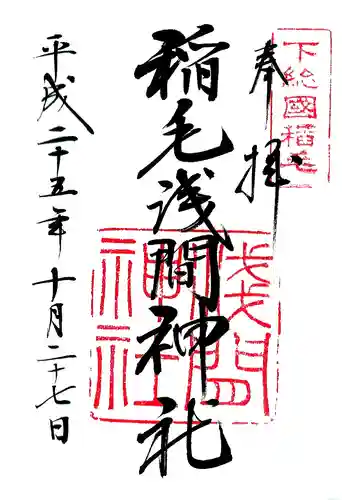 下総國稲毛
奉拝
稲毛浅間神社
浅間神社
平成二十五年十月二十七日